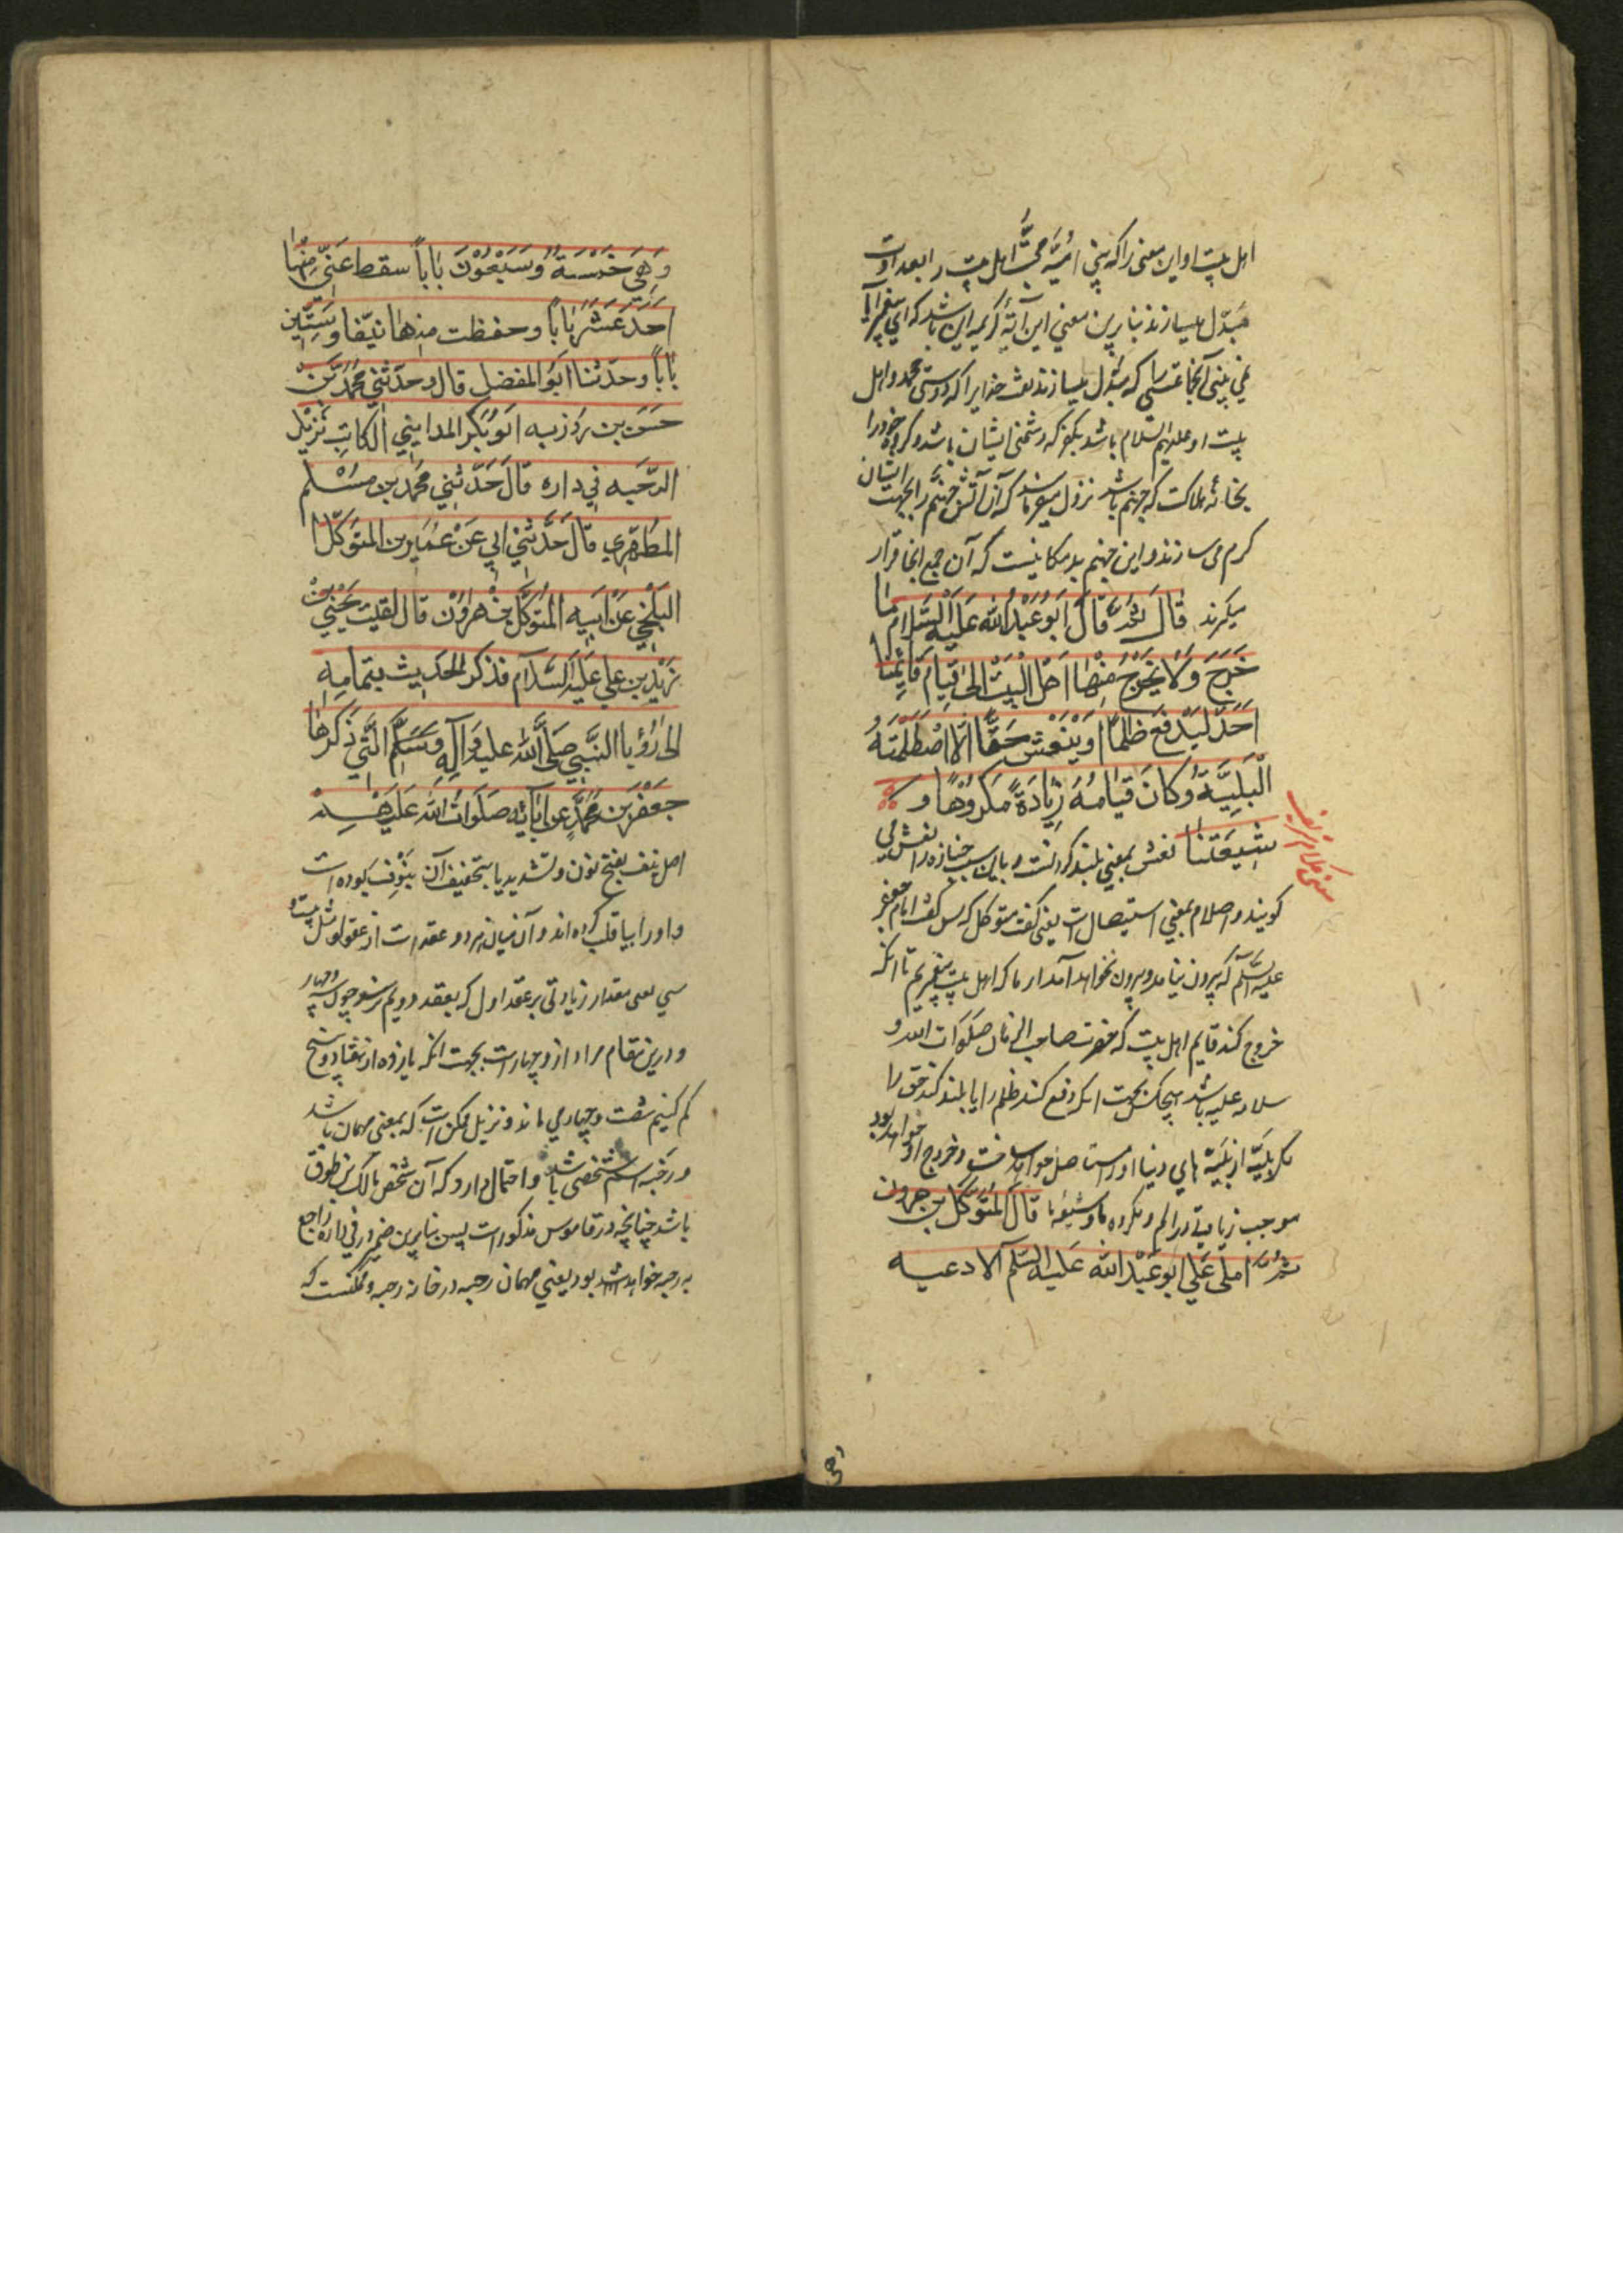 اهل بیت او این معنی را که بنی امیّه محبّت اهل بیت را بعداوت
مبدّل میسازند بنابرین معنی این آیۀ کریمه این باشد که ای پیغمبر آیا
نمی بینی آنجماعتی را که مبدّل میسازند نعمت خدایرا که دوستی محمد و اهل
بیت او علیهم السلام باشد بکفر که دشمنی ایشان باشد و گروه خود را
بخانۀ هلاکت که جهنم باشد نزول میفرمایند که آن آتش جهنم را بجهت ایشان
گرم می سازند و این جهنم بد مکانیست که آن جمع آنجا قرار
میگیرند قَالَ ثُمَّ قَالَ اَبُو عَبْدِ اللهِ عَلَيْهِ السَّلَامُ مَا
خَرَجَ وَلَا يَخْرُجُ مِنَّا اَهْلَ الْبَيْتِ اِلىٰ قِيَامِ قَائِمِنَا
اَحَدٌ لِيَدْفَعَ ظُلْمًا اَوْ يَنْعَشَ حَقًّا اِلَّا اصْطَلَمَتْهُ
الْبَلِيَّةُ وَكَانَ قِيَامُهُ زِيَادَةً فِي مَكْرُوْهِنَا وَ
شِيعَتِنَا نعش بمعنی بلند کردنست و باین سبب جنازه را نعش می
گویند و اصطلام بمعنی استیصال است یعنی گفت متوکل که پس گفت امام جعفر
علیه السلام که بیرون نیامد و بیرون نخواهد آمد از ما که اهل بیت پیغمبریم تا آنکه
خروج کند قایم اهل بیت که حضرت صاحب الزمان صلوات الله و
سلامه علیه باشد هیچکس بجهت آنکه دفع کند ظلم را یا بلند کند حق را
مگر بلیّه از بلیّه های دنیا او را مستاصل خواهد ساخت و خروج او خواهد بود
موجب زیادتی در الم و مکروه ما و شیعۀ ما قَالَ الْمُتَوَكِّلُ بن هرون
ثُمَّ اَمْلىٰ عَلَيَّ اَبُو عَبْدِ اللهِ عَلَيْهِ السَّلَم الادعيه
وهی
وَهِيَ خَمْسَةٌ وَسَبْعُوْنَ بَابًا سقط عَنِّي مِنْهَا
اَحَدَ عَشَرَ بَابًا وحفظت منها نيّفا وَسِتِّين
بَابًا وحدّثنا ابو المفضل قال وحدّثني محمّد بْن
حسن بن روزبه ابو بكر المدايني الكاتب نزيل
الرّحبه في داره قَالَ حَدَّثَني محمد بن مسلم
المطهّري قَالَ حَدَّثَني ابي عَنْ عمير بن المتوكل
البلخي عَنْ ابيه المتوكل بن هرون قال لقيت يحيى بن
زيد بن علي عليه السّلام فذكر الحديث بتمامه
الى رؤيا النّبي صلّى الله عليه وآله وسلّم الّتي ذكرها
جعفر بن محمّد عن ابائه صلوات الله عليهم
اصل نیف بفتح نون و تشدید یا بتخفیف آن نیوف بوده است
واو را بیا قلب کرده اند و آن میان هر دو عقد است از عقود مثل بیست و
سی یعنی مقدار زیادتی بر عقد اول که بعقد دویم نرسد چون سه و چهار
و درین مقام مراد از و چهار است بجهت آنکه یازده از هفتاد و پنج
کم کنیم شصت و چهار می ماند و نزیل ممکن است که بمعنی مهمان باشد
و رحبه اسم شخصی باشد و احتمال دارد که آن شخص مالک بن طوق
باشد چنانچه در قاموس مذکور است پس بنابرین ضمیر در فی داره راجع
به رحبه خواهد بود یعنی مهمان رحبه در خانه رحبه و ممکنست که